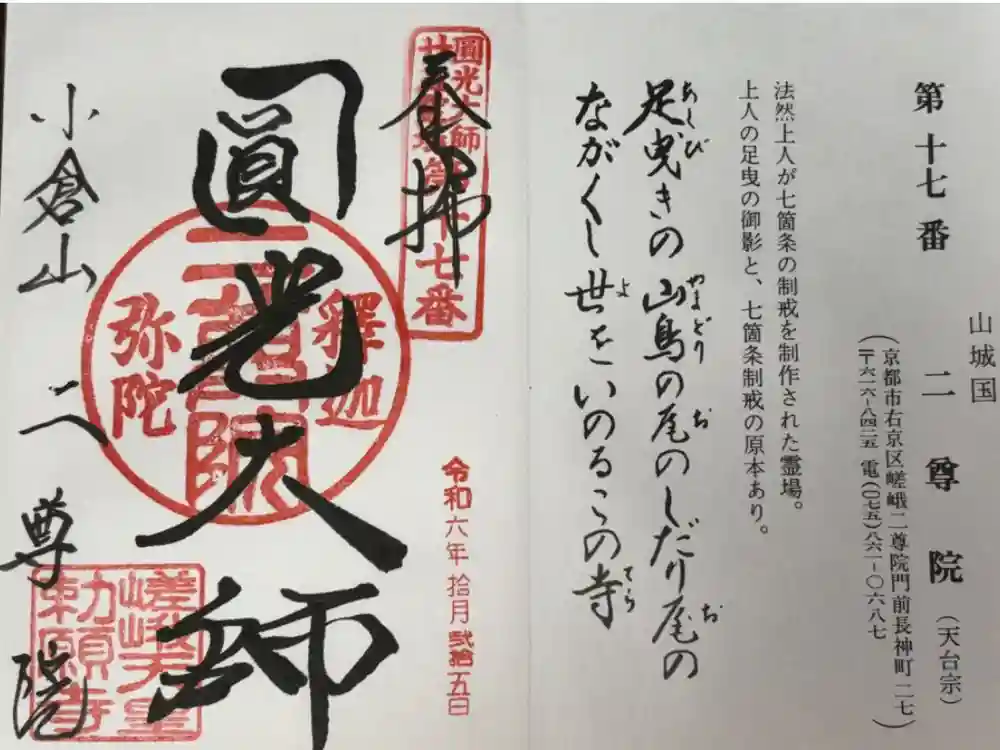 第十七番
山城国
二尊院（天台宗）
（京都市右京区嵯峨二尊院門前長神町二七
〒六一六-八四二五　電（〇七五）八六一-〇六八七）
法然上人が七箇条の制戒を制作された霊場。
上人の足曳の御影と、七箇条制戒の原本あり。
足曳きの山鳥の尾のしだり尾の
あしび
やまどり
お
お
ながくし世をいのるこの寺
よ
てら
圓光大師
廿五霊場第十七番
奉拝
圓光大師
釋迦
二尊院
弥陀
令和六年拾月弐拾五日
小倉山二尊院
嵯峨天皇
勅願寺